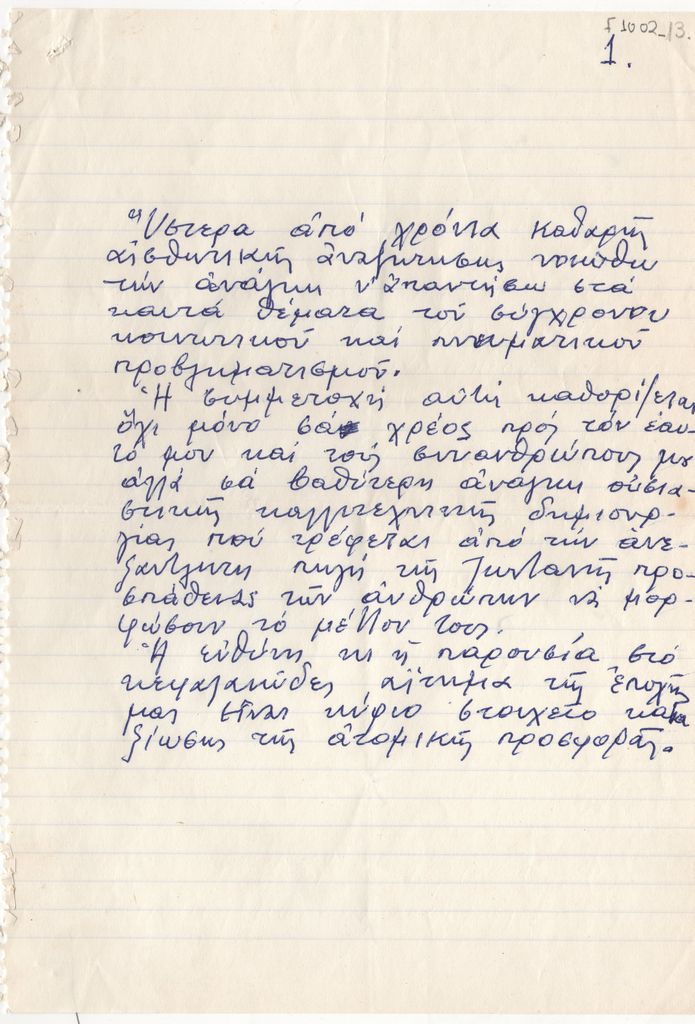 F 1002_13.
1.
Ὕστερα ἀπό χρόνια καθαρῆς
αἰσθητικῆς ἀναζήτησης νοιώθω
τήν ἀνάγκη ν' ἀπαντήσω στά
καυτά θέματα τοῦ σύγχρονου
κοινωνικοῦ καί πνευματικοῦ
προβληματισμοῦ.
Ἡ συμμετοχή αὐτή καθορίζεται
ὄχι μόνο σά χρέος πρός τόν ἑαυ-
τό μου καί τούς συνανθρώπους μου
ἀλλά σά βαθύτερη ἀνάγκη οὐσια-
στικῆς καλλιτεχνικῆς δημιουρ-
γίας πού τρέφεται ἀπό τήν ἀνε-
ξάντλητη πηγή τῆς ζωντανῆς προ-
σπάθειας τῶν ἀνθρώπων νά μορ-
φώσουν τό μέλλον τους.
Ἡ εὐθύνη κι ἡ παρουσία στό
κεφαλαιῶδες αἴτημα τῆς ἐποχῆς
μας εἶναι κύριο στοιχεῖο κατα
ξίωσης τῆς ἀτομικῆς προσφορᾶς.